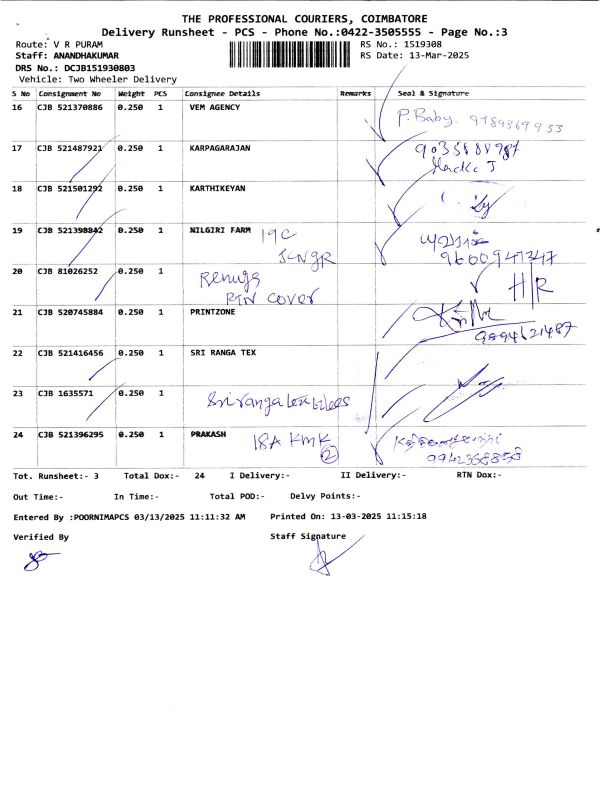 THE PROFESSIONAL COURIERS, COIMBATORE
Delivery Runsheet - PCS - Phone No.:0422-3505555 - Page No.:3
Route: V R PURAM
RS No.: 1519308
Staff: ANANDHAKUMAR
RS Date: 13-Mar-2025
DRS No.: DCJB151930803
Vehicle: Two Wheeler Delivery
S No Consignment No Weight PCS Consignee Details Remarks Seal & Signature
16 CJB 521370886 0.250 1 VEM AGENCY
P. Baby. 9789369933
17 CJB 521487921 0.250 1 KARPAGARAJAN
18 CJB 521501292 0.250 1 KARTHIKEYAN
19 CJB 521398842 0.250 1 NILGIRI FARM 19C
9600947347
20 CJB 81026252 0.250 1 Renuga
RTN COVER
H/R
21 CJB 520745884 0.250 1 PRINTZONE
9894621487
22 CJB 521416456 0.250 1 SRI RANGA TEX
23 CJB 1635571 0.250 1
24 CJB 521396295 0.250 1 PRAKASH 18A KMK
2
Tot. Runsheet:- 3 Total Dox:- 24 I Delivery:- II Delivery:- RTN Dox:-
Out Time:- In Time:- Total POD:- Delvy Points:-
Entered By :POORNIMAPCS 03/13/2025 11:11:32 AM Printed On: 13-03-2025 11:15:18
Verified By Staff Signature